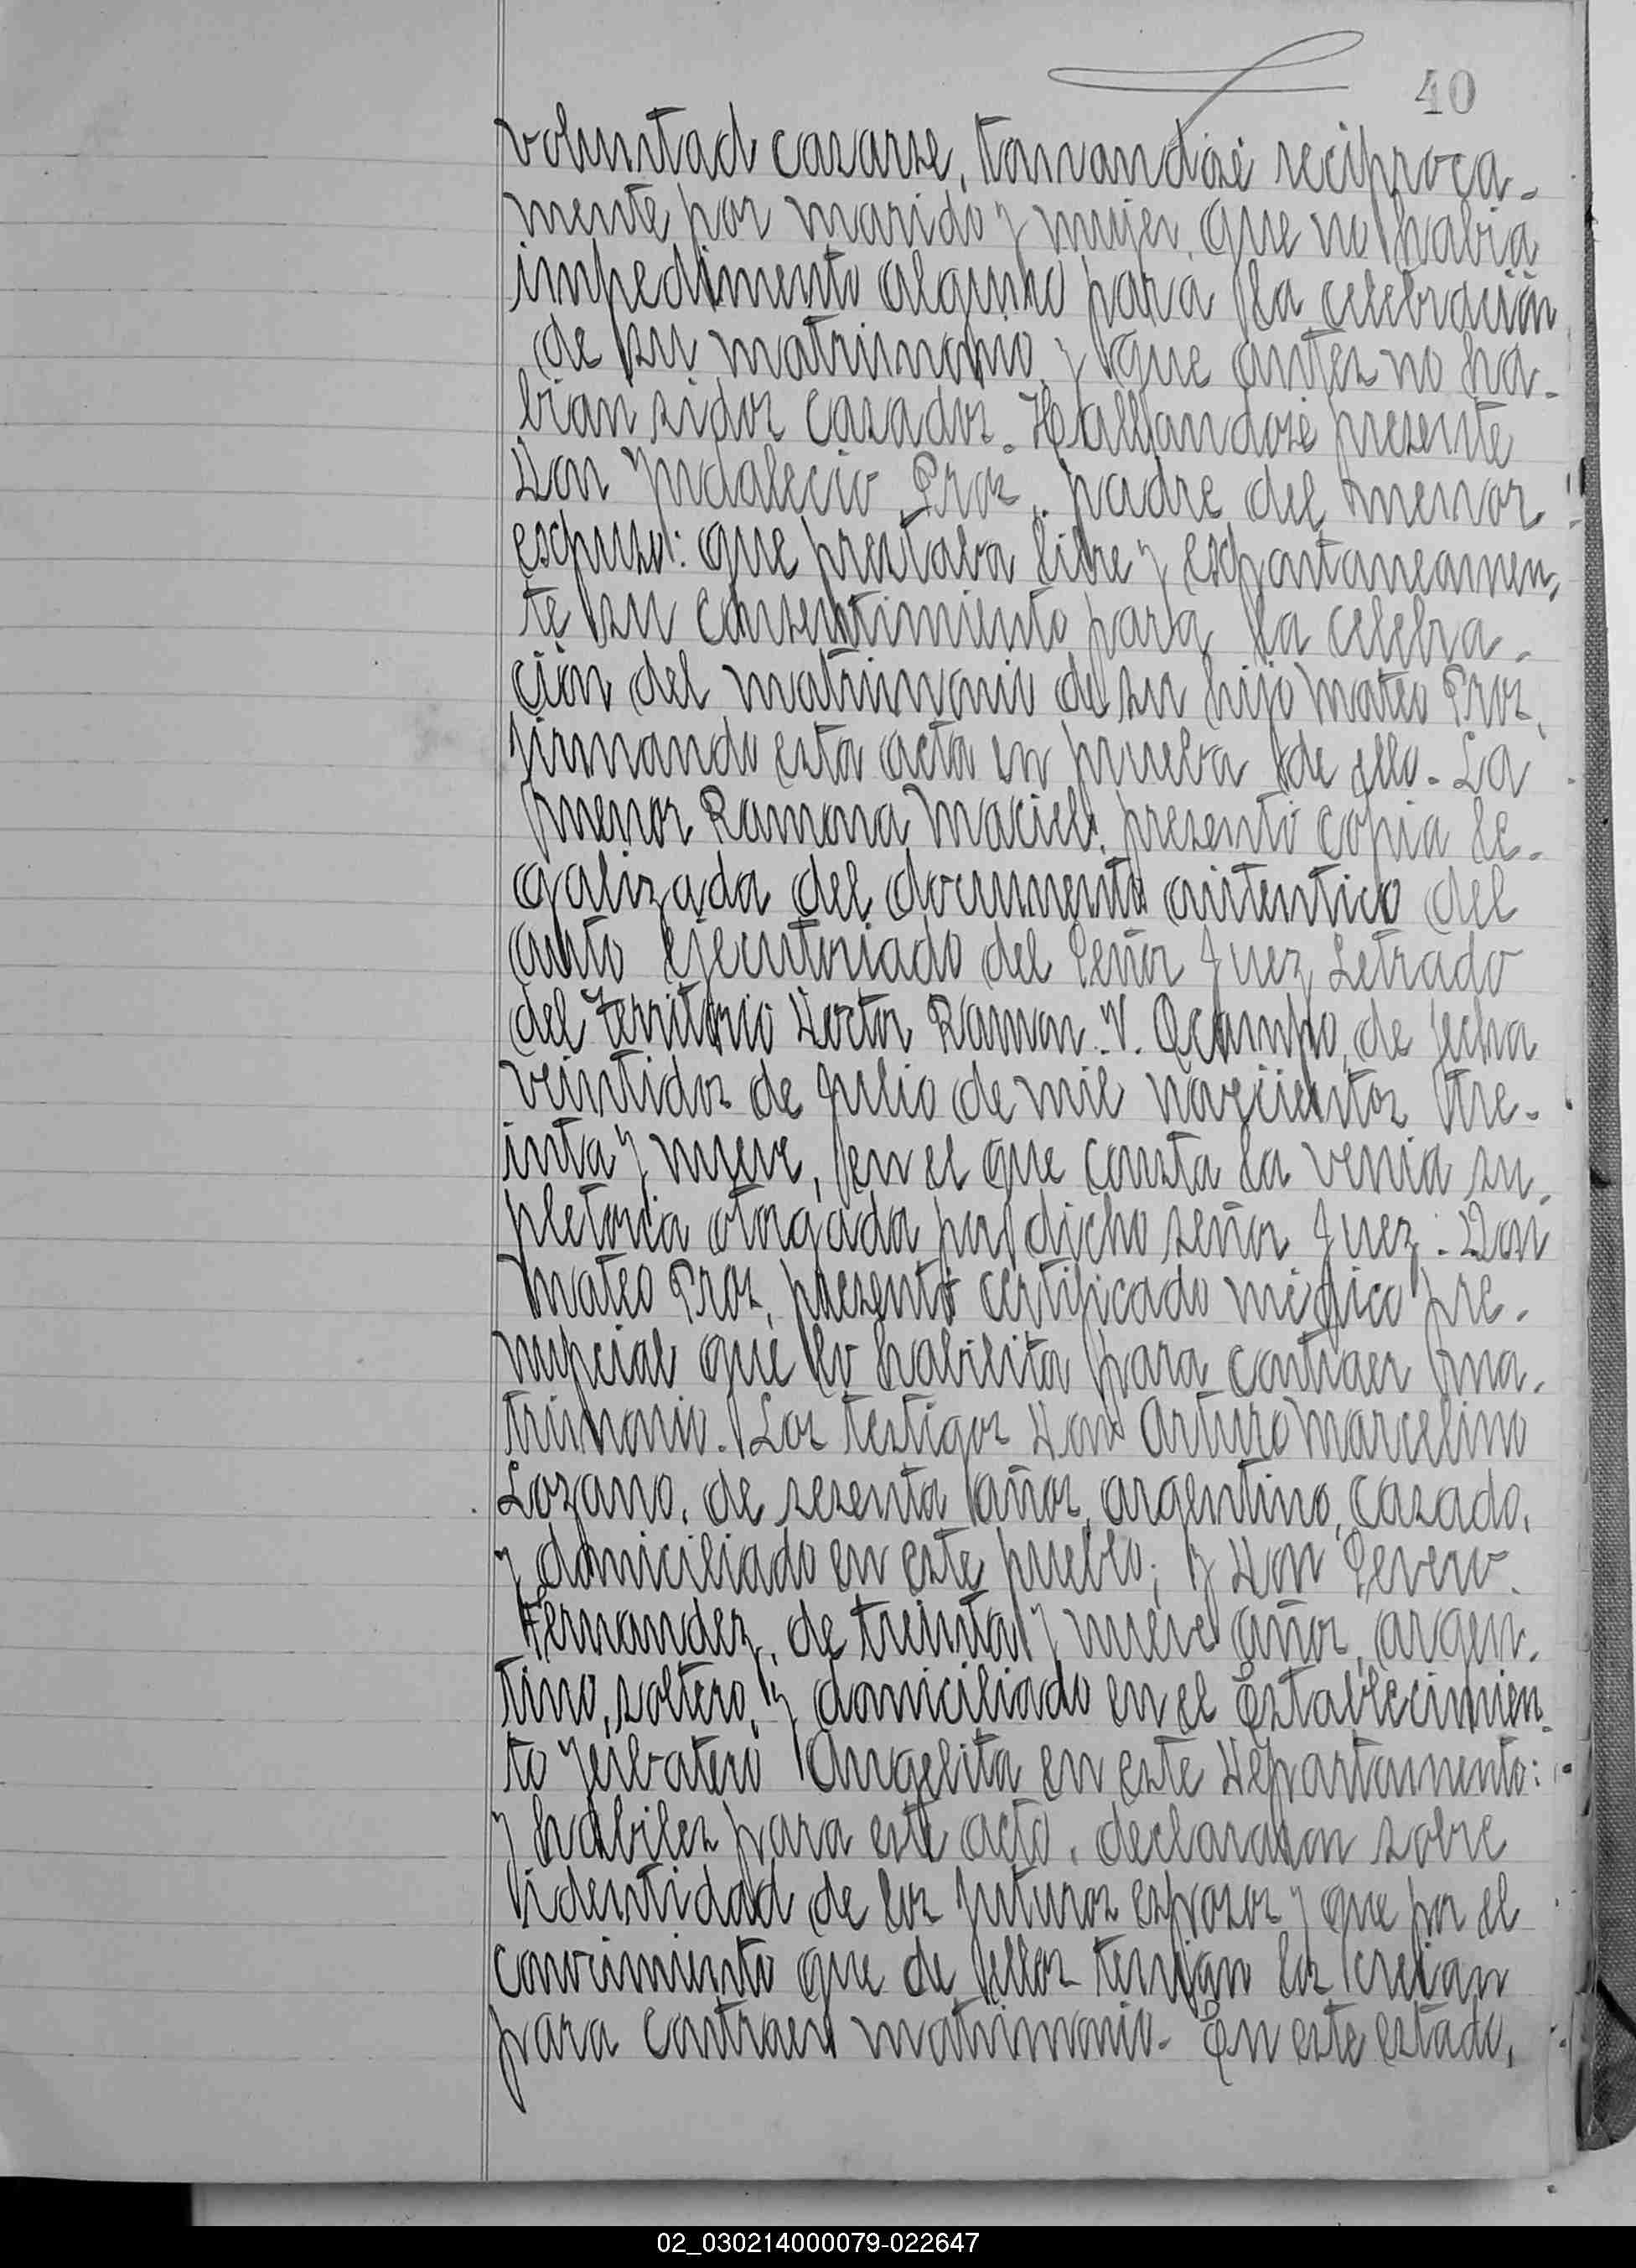 40
voluntad casarse, tomandosé recíproca-
mente por marido y mujer, que no habia
impedimento alguno para la celebración
de su matrimonio, y que antes no ha-
bian sidos casados. Hallandosé presente
Don Yndalecio Pros, padre del menor
espuso: que prestaba libre y espontaneamen-
te su consentimiento para la celebra-
ción del matrimonio de su hijo Mateo Pros,
firmando esta acta en prueba de ello. La
menor Ramona Maciel, presentó copia le-
galizada del documento autentico del
auto ejecutoriado del Señor Juez Letrado
del Territorio Doctor Ramon V. Ocampo, de fecha
veintidos de Julio de mil novecientos tre-
inta y nueve, en el que consta la venia su-
pletoria otorgada por dicho señor Juez. Don
Mateo Pros, presentó certificado médico pre-
nupcial que lo habilita para contraer ma-
trimonio. Los testigos Don Arturo Marcelino
Lozano, de sesenta años, argentino, casado,
y domiciliado en este pueblo; y Don Severo
Fernandez, de treinta y nueve años, argen-
tino, soltero, y domiciliado en el Establecimien-
to Yerbatero Angelita en este Departamento:
y habiles para este acto, declararon sobre
identidad de los futuros esposos y que por el
conocimiento que de ellos tenian los creian
para contraer matrimonio. En este estado,
02_030214000079-022647